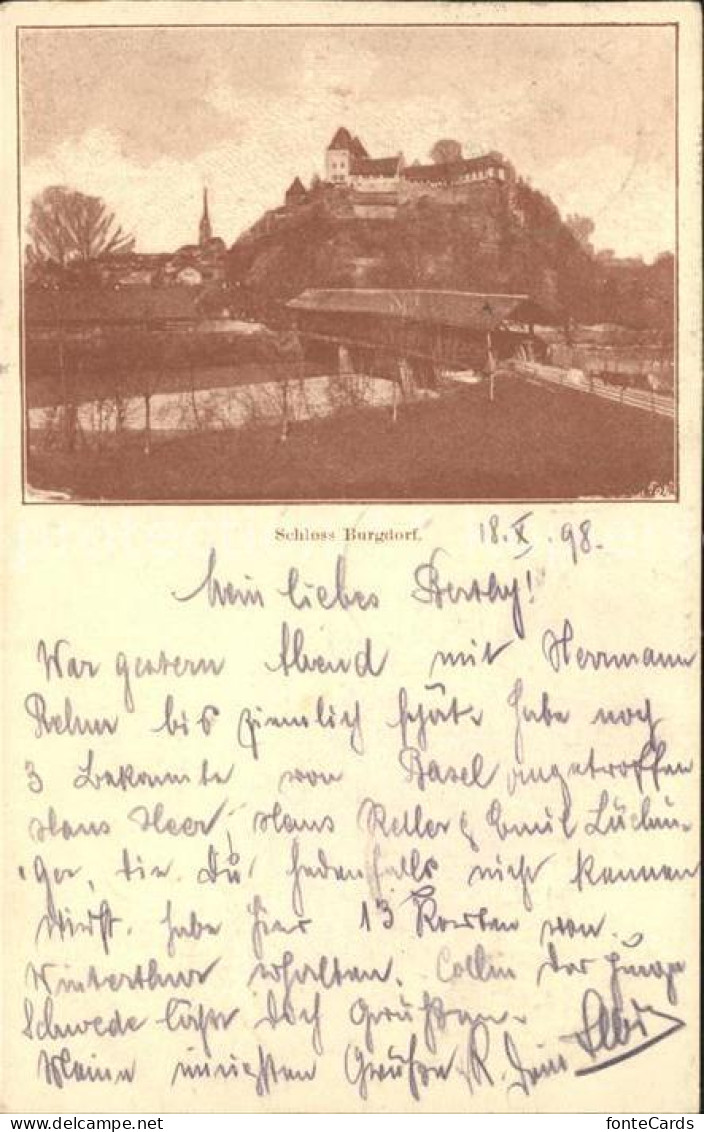 Schloss Burgdorf.
18. X. 98.
Mein liebes Berthy!
War gestern Abend mit Herrmann
Rehm bis ziemlich spät. Habe noch
3 Bekannte von Basel angetroffen
Hans Heer, Hans Keller & Emil Lüchin-
ger, die Du jedenfalls nicht kennen
wirst. habe hier 13 Karten von
Winterthur erhalten. Collin der junge
Schwede lässt Dich Grüssen.
Meine innigsten Grüsse & K. Dein
fonteCards